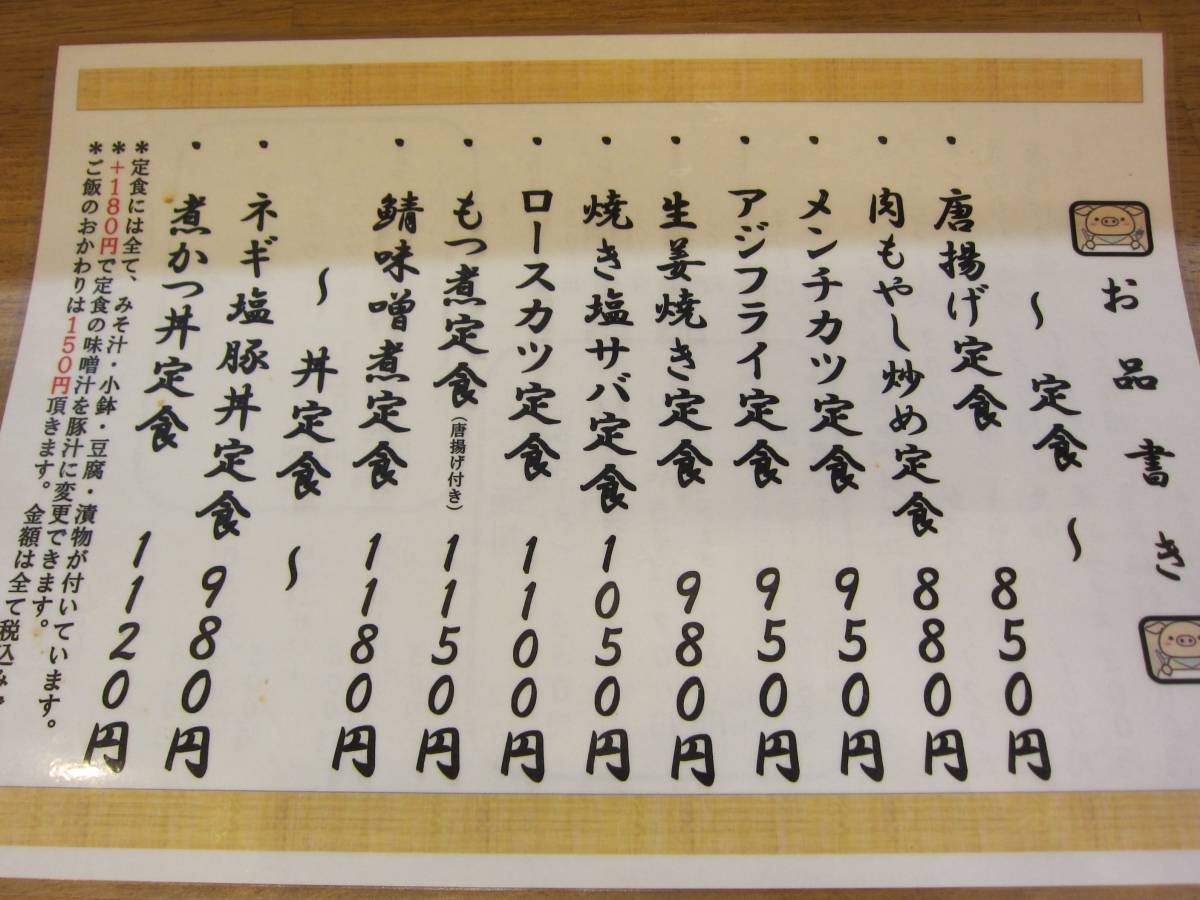 お品書き
～ 定食 ～
・唐揚げ定食 850円
・肉もやし炒め定食 880円
・メンチカツ定食 950円
・アジフライ定食 950円
・生姜焼き定食 980円
・焼き塩サバ定食 1050円
・ロースカツ定食 1100円
・もつ煮定食（唐揚げ付き） 1150円
・鯖味噌煮定食 1180円
～ 丼定食 ～
・ネギ塩豚丼定食 980円
・煮かつ丼定食 1120円
＊定食には全て、みそ汁・小鉢・豆腐・漬物が付いています。
＊＋180円で定食の味噌汁を豚汁に変更できます。
＊ご飯のおかわりは150円頂きます。 金額は全て税込み